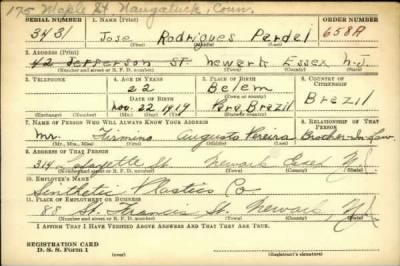 175 Maple St Naugatuck, Conn.
SERIAL NUMBER 1. NAME (Print) ORDER NUMBER
3431 Jose Rodrigues Perdel 658A
(First) (Middle) (Last)
2. ADDRESS (Print)
42 Jefferson St. Newark Essex N.J.
(Number and street or R. F. D. number) (Town) (County) (State)
3. TELEPHONE 4. AGE IN YEARS 5. PLACE OF BIRTH 6. COUNTRY OF CITIZENSHIP
22 Belem
DATE OF BIRTH (Town or county)
Nov. 22 1919 Para, Brazil Brezil
(Exchange) (Number) (Mo.) (Day) (Yr.) (State or country)
7. NAME OF PERSON WHO WILL ALWAYS KNOW YOUR ADDRESS 8. RELATIONSHIP OF THAT PERSON
Mr. Firmino Augusto Pereira Brother-In-Law
(Mr., Mrs., Miss) (First) (Middle) (Last)
9. ADDRESS OF THAT PERSON
314 Lafayette St Newark Essex N.J.
(Number and street or R. F. D. number) (Town) (County) (State)
10. EMPLOYER'S NAME
Sinthetic Plastics Co
11. PLACE OF EMPLOYMENT OR BUSINESS
88 St. Francis St. Newark, N.J.
(Number and street or R. F. D. number) (Town) (County) (State)
I AFFIRM THAT I HAVE VERIFIED ABOVE ANSWERS AND THAT THEY ARE TRUE.
REGISTRATION CARD
D. S. S. Form 1 (Registrant's signature)